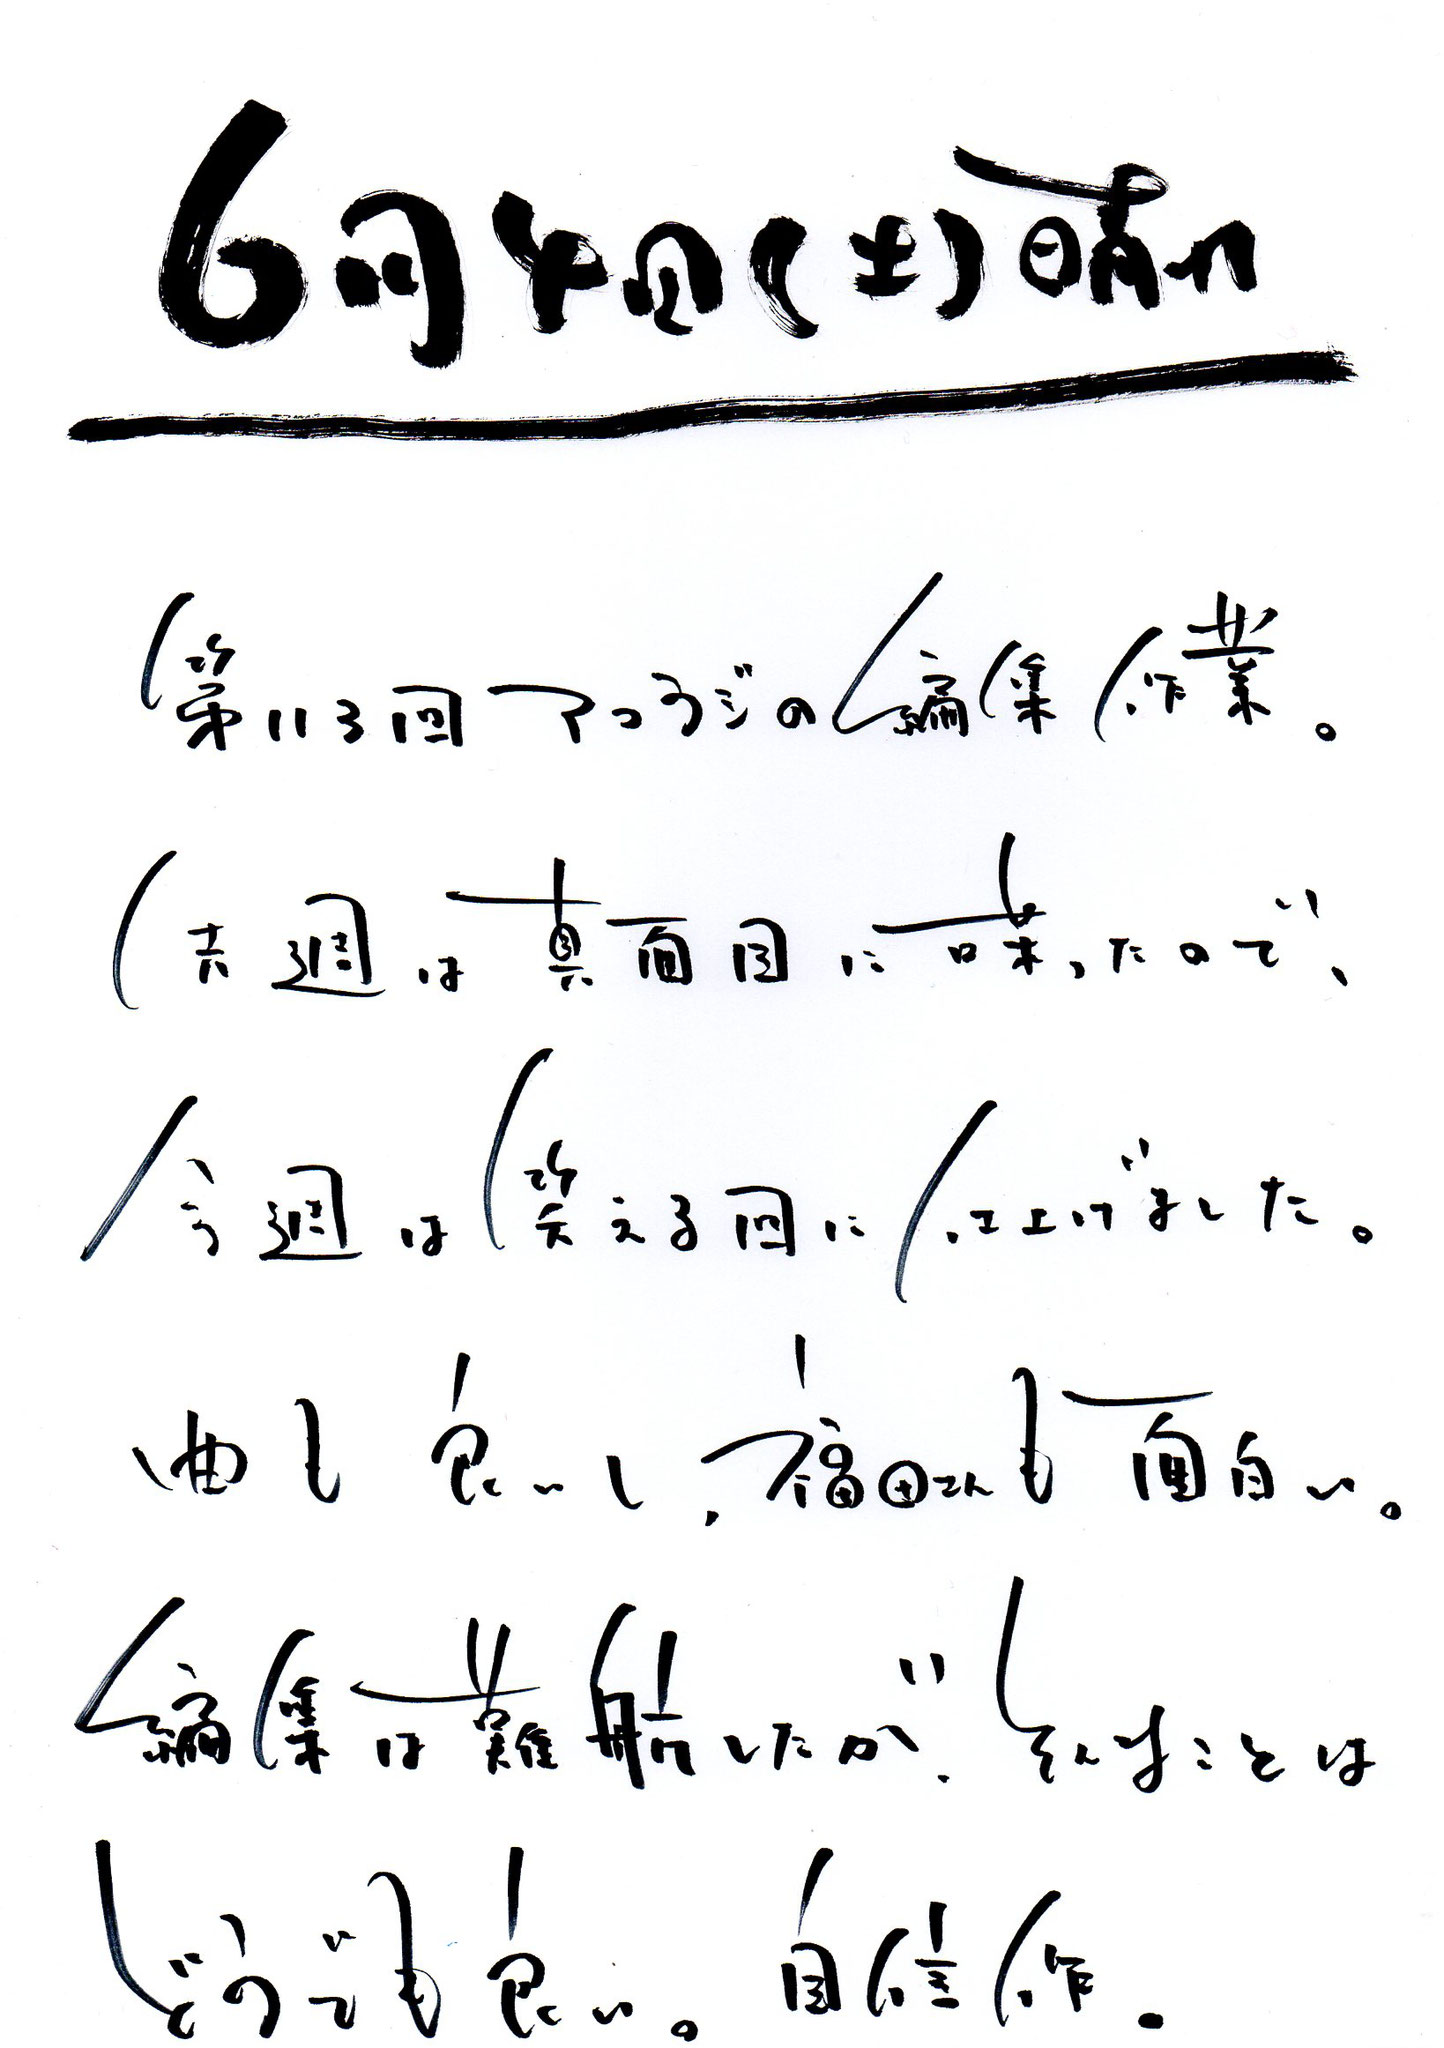 6月4日(土)晴れ
第113回アコラジの編集作業。
去週は真面目に喋ったので、
今週は笑える回に仕上げました。
曲も良いし、福田さんも面白い。
編集は難航したが、そんなことは
どうでも良い。自信作。